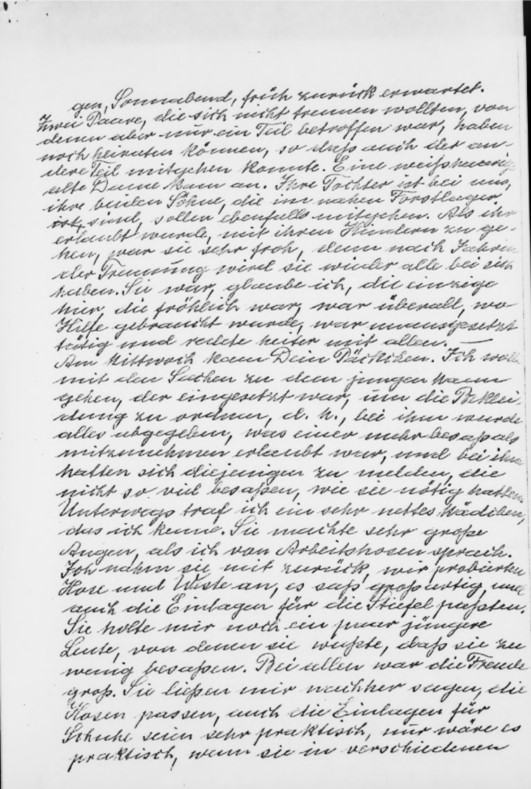 gen, Sonnabend, früh zurück erwartet.
Zwei Paare, die sich nicht trennen wollten, von
denen aber nur ein Teil betroffen war, haben
noch heiraten können, so daß auch der an-
dere Teil mitgehen konnte. Eine weißhaarige
alte Dame kam an. Ihre Tochter ist bei uns,
ihre beiden Söhne, die im nahen Forstlager
ist, sind, sollen ebenfalls mitgehen. Als ihr
erlaubt wurde, mit ihren Kindern zu ge-
hen, war sie sehr froh, denn nach Jahren
der Trennung wird sie wieder alle bei sich
haben. Sie war, glaube ich, die einzige
hier, die fröhlich war, war überall, wo
Hilfe gebraucht wurde, war unausgesetzt
tätig und redete heiter mit allen.
Am Mittwoch kam Dein Päckchen. Ich woll
mit den Sachen zu dem jungen Mann
gehen, der eingesetzt war, um die Beklei-
dung zu ordnen, d. h., bei ihm wurde
alles abgegeben, was einer mehr besaß als
mitzunehmen erlaubt war, und bei ihm
hatten sich diejenigen zu melden, die
nicht so viel besaßen, wie sie nötig hatten.
Unterwegs traf ich ein sehr nettes Mädchen,
das ich kenne. Sie machte sehr große
Augen, als ich von Arbeitshosen sprach.
Ich nahm sie mit zurück, wir probierten
Hose und Weste an, es saß großartig, und
auch die Einlagen für die Stiefel paßten.
Sie holte mir noch ein paar jüngere
Leute, von denen sie wußte, daß sie zu
wenig besaßen. Bei allen war die Freude
groß. Sie ließen mir nachher sagen, die
Hosen passen, auch die Einlagen für
Schuhe seien sehr praktisch, nur wäre es
praktisch, wenn sie in verschiedenen